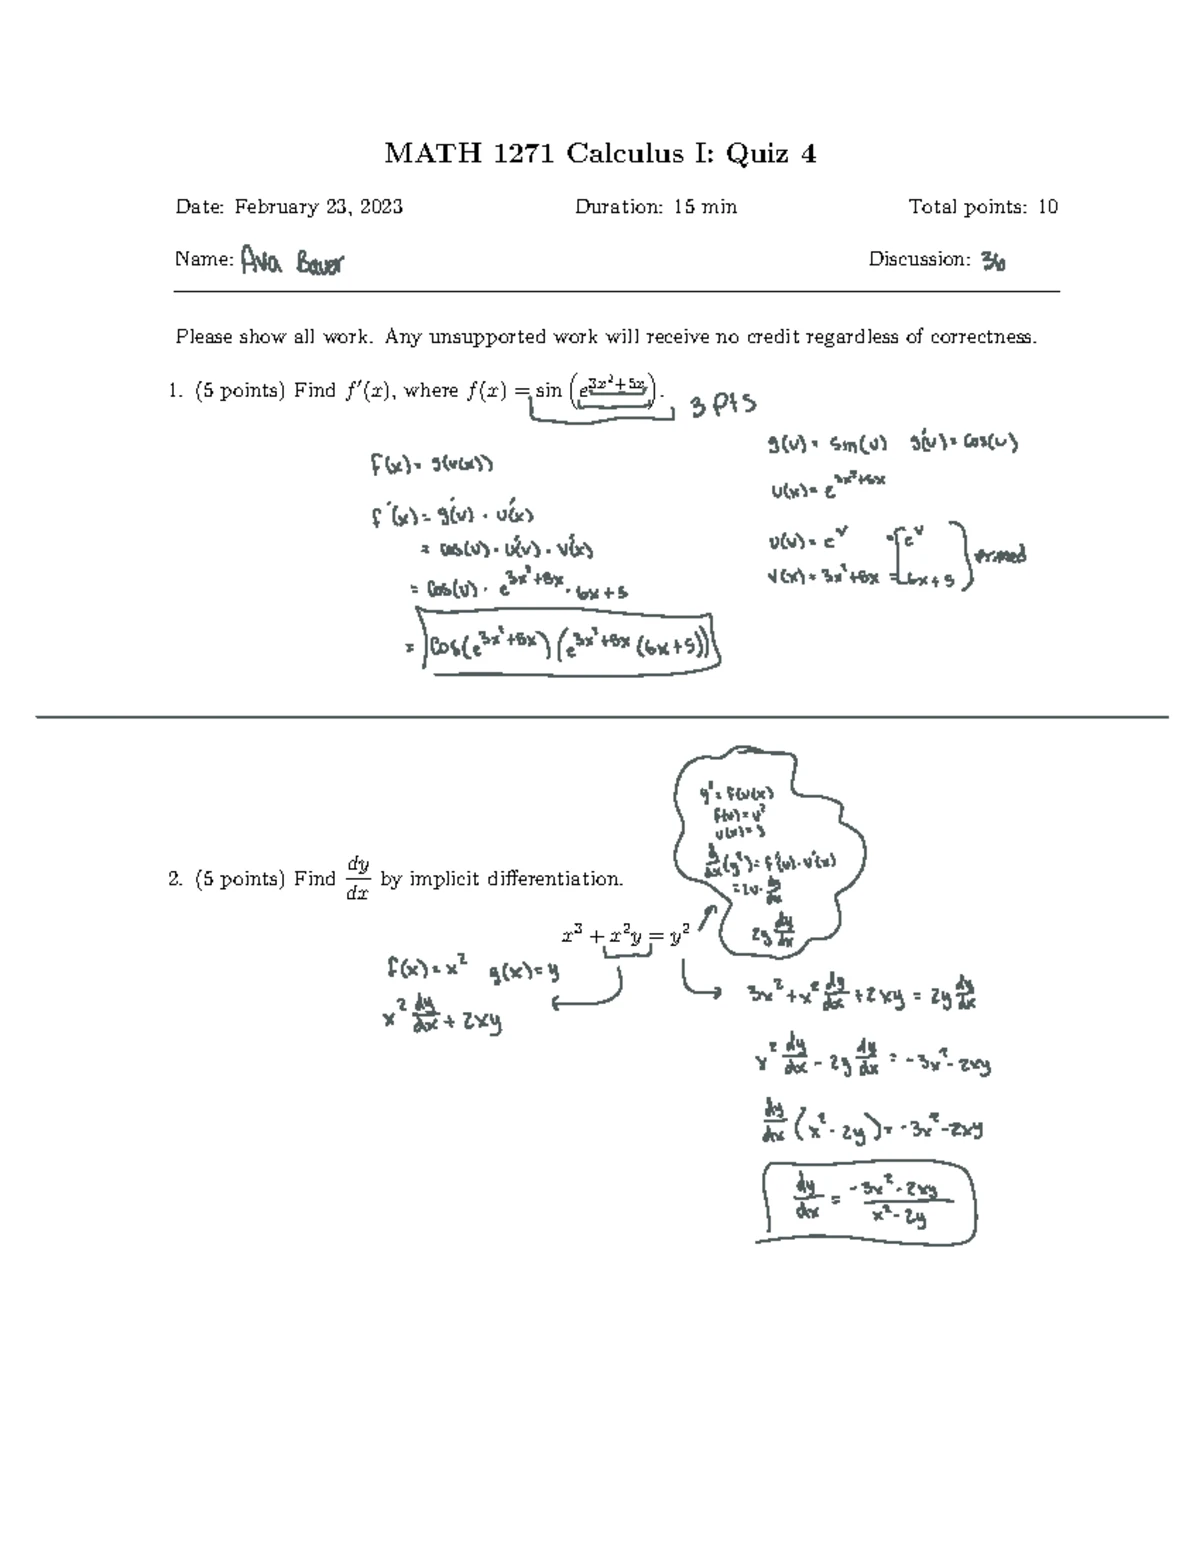 MATH 1271 Calculus I: Quiz 4
Date: February 23, 2023 Duration: 15 min Total points: 10
Name: Ava Bauer Discussion: 36
Please show all work. Any unsupported work will receive no credit regardless of correctness.
1. (5 points) Find f′(x), where f(x) = sin (e^{3x²+5x}).
3 pts
f(x) = g(u(x))
f′(x) = g′(u) · u′(x)
= cos(u) · u′(v) · v′(x)
= cos(u) · e^{3x²+5x} · 6x+5
= cos(e^{3x²+5x})(e^{3x²+5x}(6x+5))
g(u) = sin(u) g′(u) = cos(u)
u(x) = e^{3x²+5x}
u(v) = e^v = e^v
v(x) = 3x²+5x = 6x+5
primed
2. (5 points) Find dy/dx by implicit differentiation.
x³ + x²y = y²
y² = f(u(x)
f(u) = u²
u(x) = y
d/dx(y²) = f′(u) · u′(x)
= 2u · dy/dx
2y dy/dx
f(x) = x² g(x) = y
x² dy/dx + 2xy
3x² + x² dy/dx + 2xy = 2y dy/dx
x² dy/dx - 2y dy/dx = -3x² - 2xy
dy/dx (x² - 2y) = -3x² - 2xy
dy/dx = -3x² - 2xy / x² - 2y